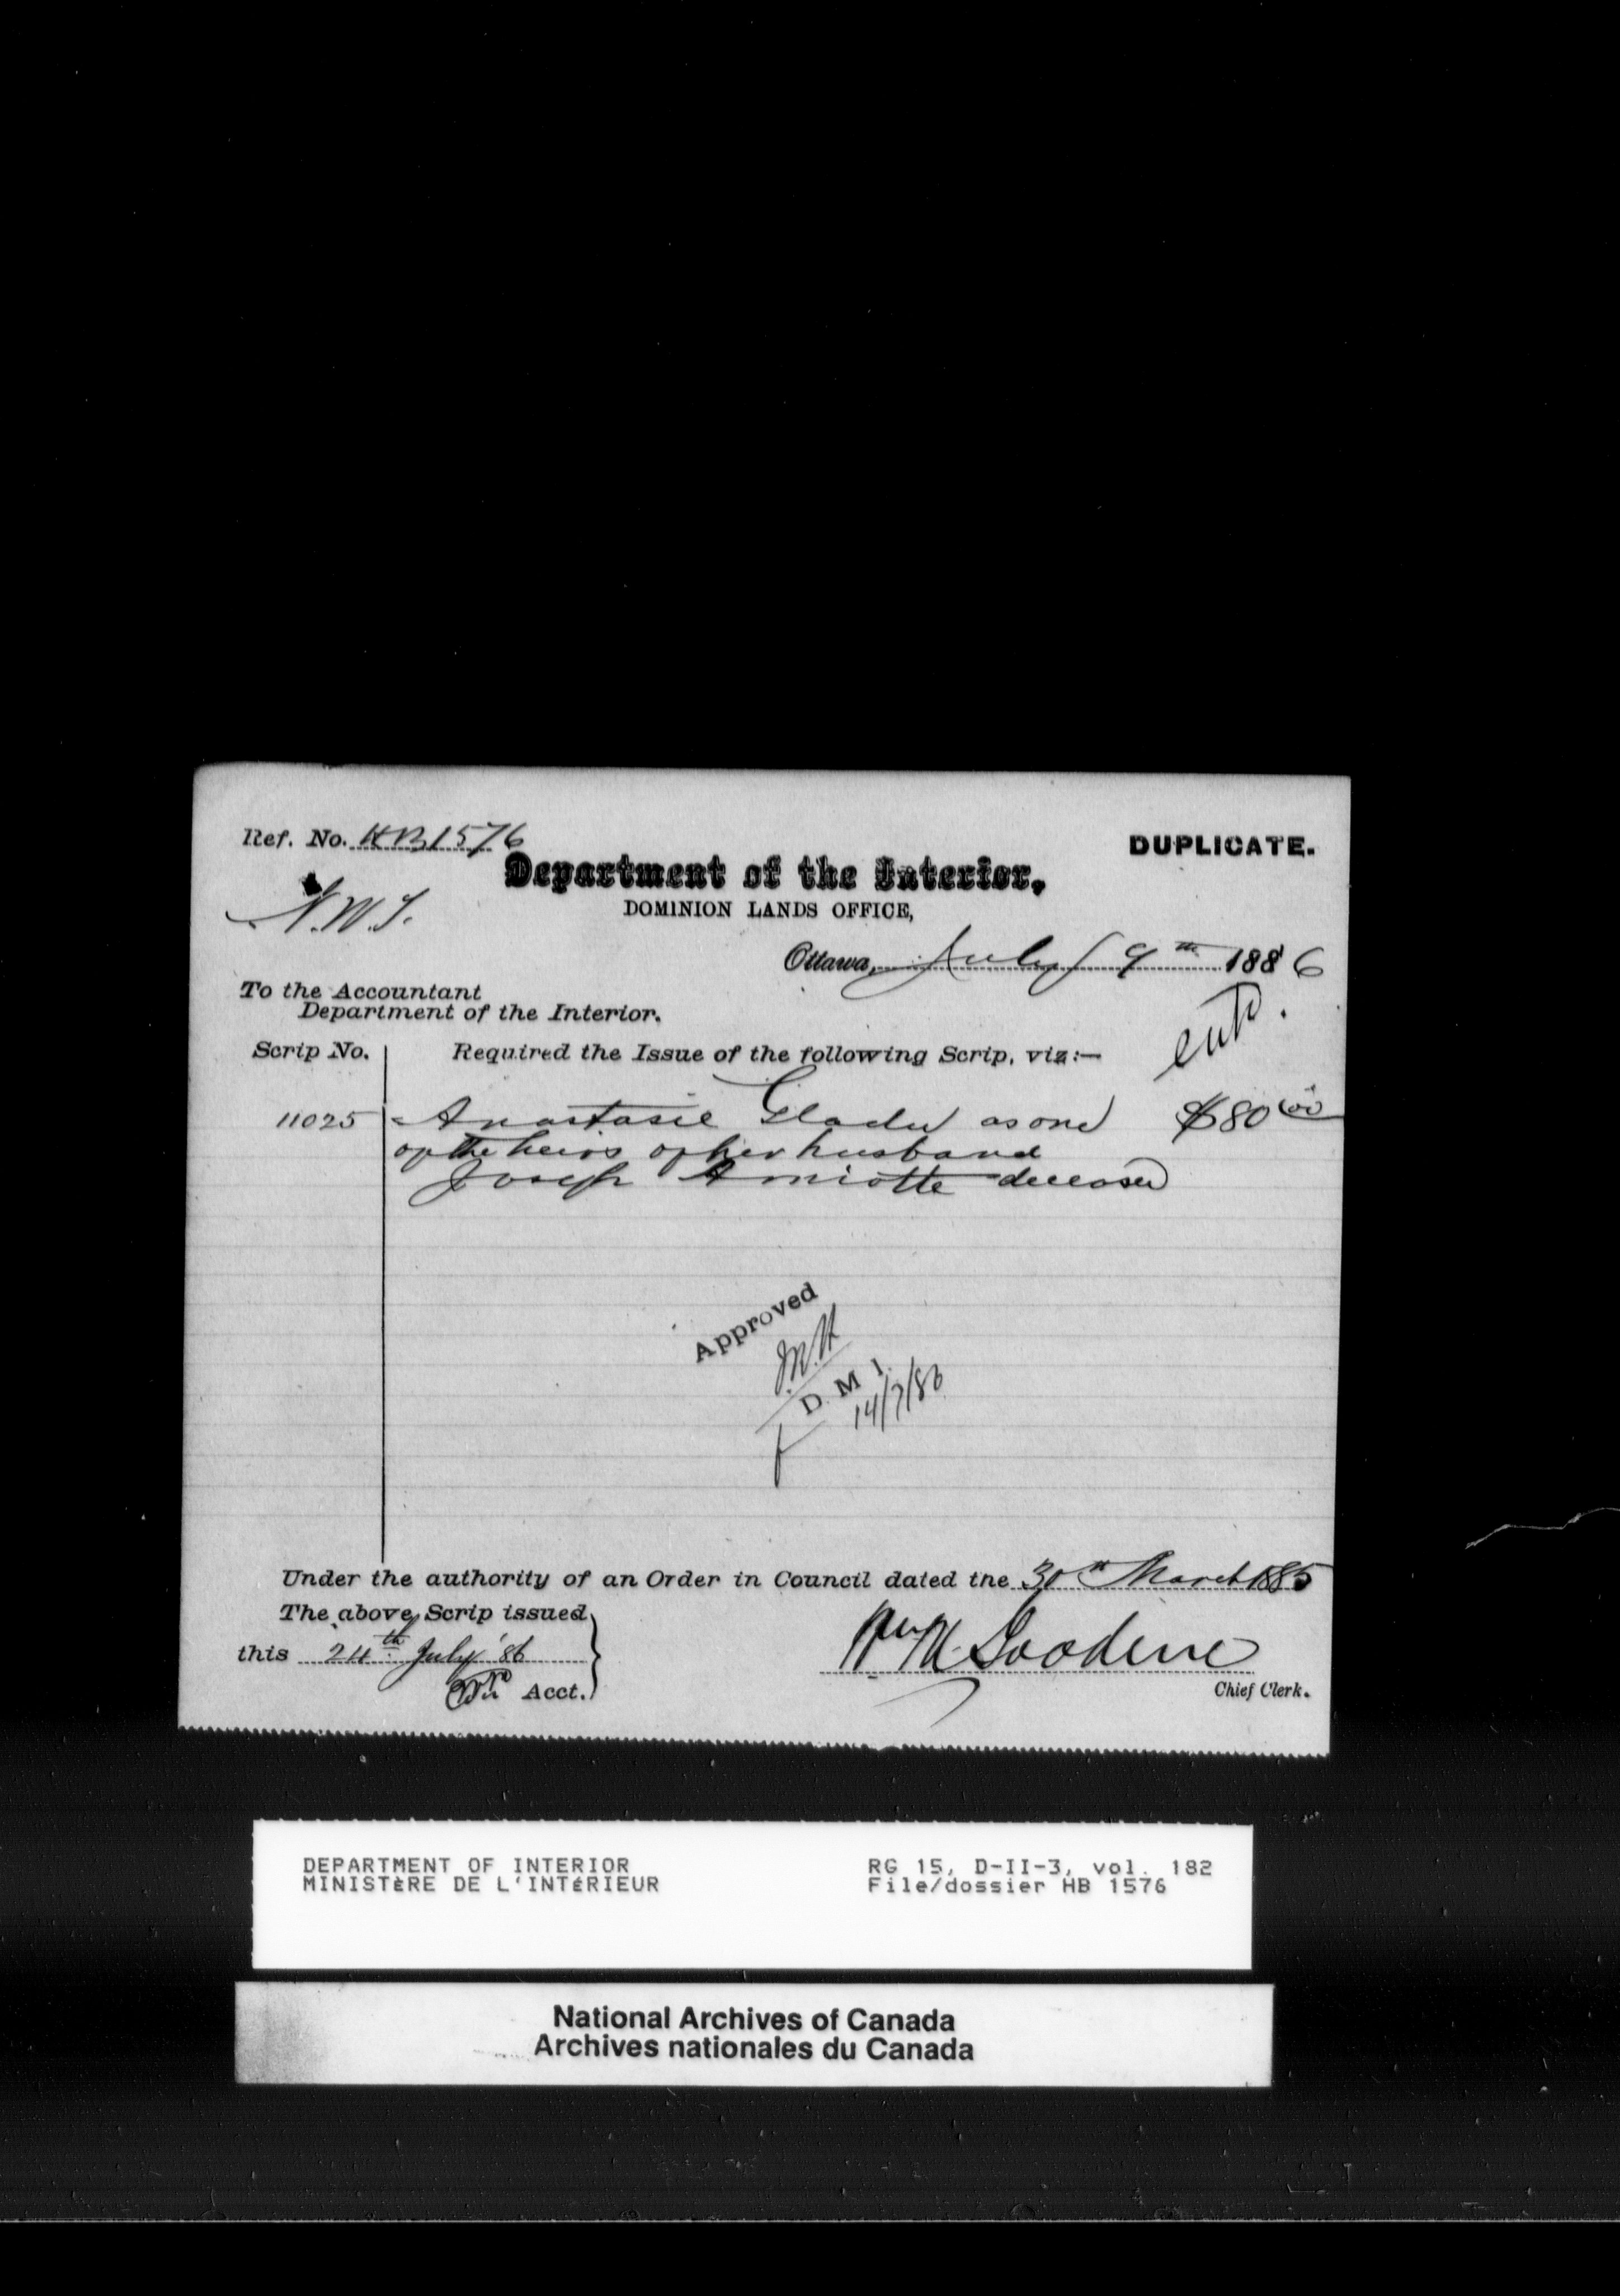 Ref. No. HB1576
DUPLICATE.
Department of the Interior,
N.W.T.
DOMINION LANDS OFFICE,
Ottawa, July 9th 1886
To the Accountant
Department of the Interior.
entd.
Scrip No. Required the Issue of the following Scrip, viz:—
11025 Anastasie Gladu as one $80 00
of the heirs of her husband
Joseph Amiotte deceased
Approved
D. M. I.
14/7/86
Under the authority of an Order in Council dated the 30th March 1885
The above Scrip issued
this 24th July '86
Acct.
Chief Clerk.
DEPARTMENT OF INTERIOR
MINISTÈRE DE L'INTÉRIEUR
RG 15, D-II-3, vol. 182
File/dossier HB 1576
National Archives of Canada
Archives nationales du Canada